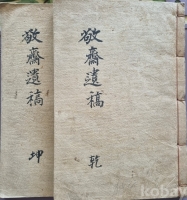 敬齋遺稿
乾
敬齋遺稿
坤
kobay